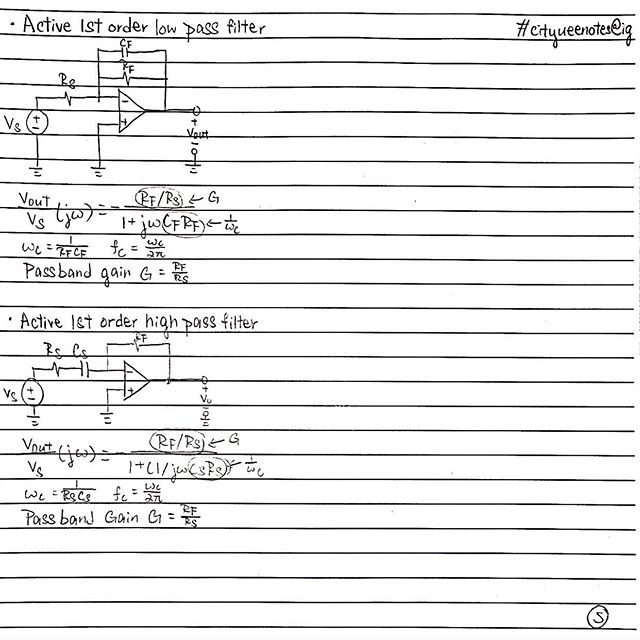 • Active 1st order low pass filter
#cityueenotes@ig
CF
RF
RS
−
+
VS
+
−
+
Vout
−
Vout/VS (jω) = − (RF/RS) ← G / 1 + jω(CFRF) ← 1/ωc
ωc = 1/RFCF fc = ωc/2π
Passband gain G = RF/RS
• Active 1st order high pass filter
RF
RS CS
−
+
VS
+
−
+
Vo
−
Vout/VS (jω) = − (RF/RS) ← G / 1+(1/jω(CSRS) ← 1/ωc
ωc = 1/RSCS fc = ωc/2π
Passband Gain G = RF/RS
5